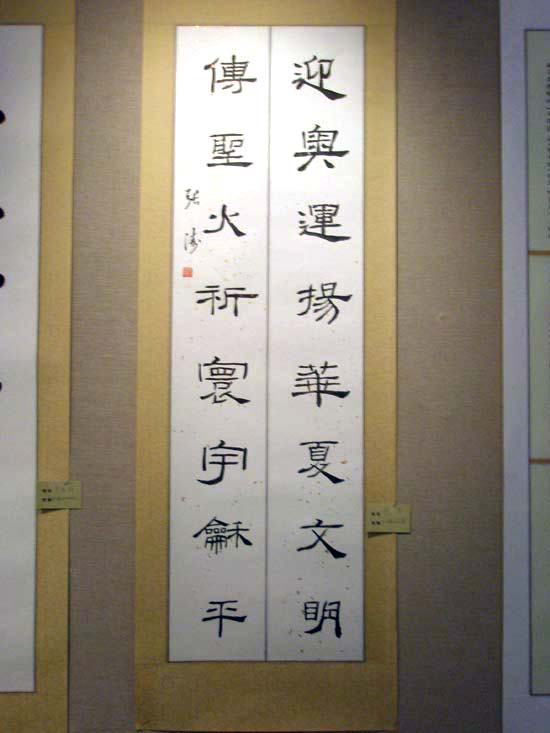 迎奧運揚華夏文明
傳聖火祈寰宇龢平
張濤